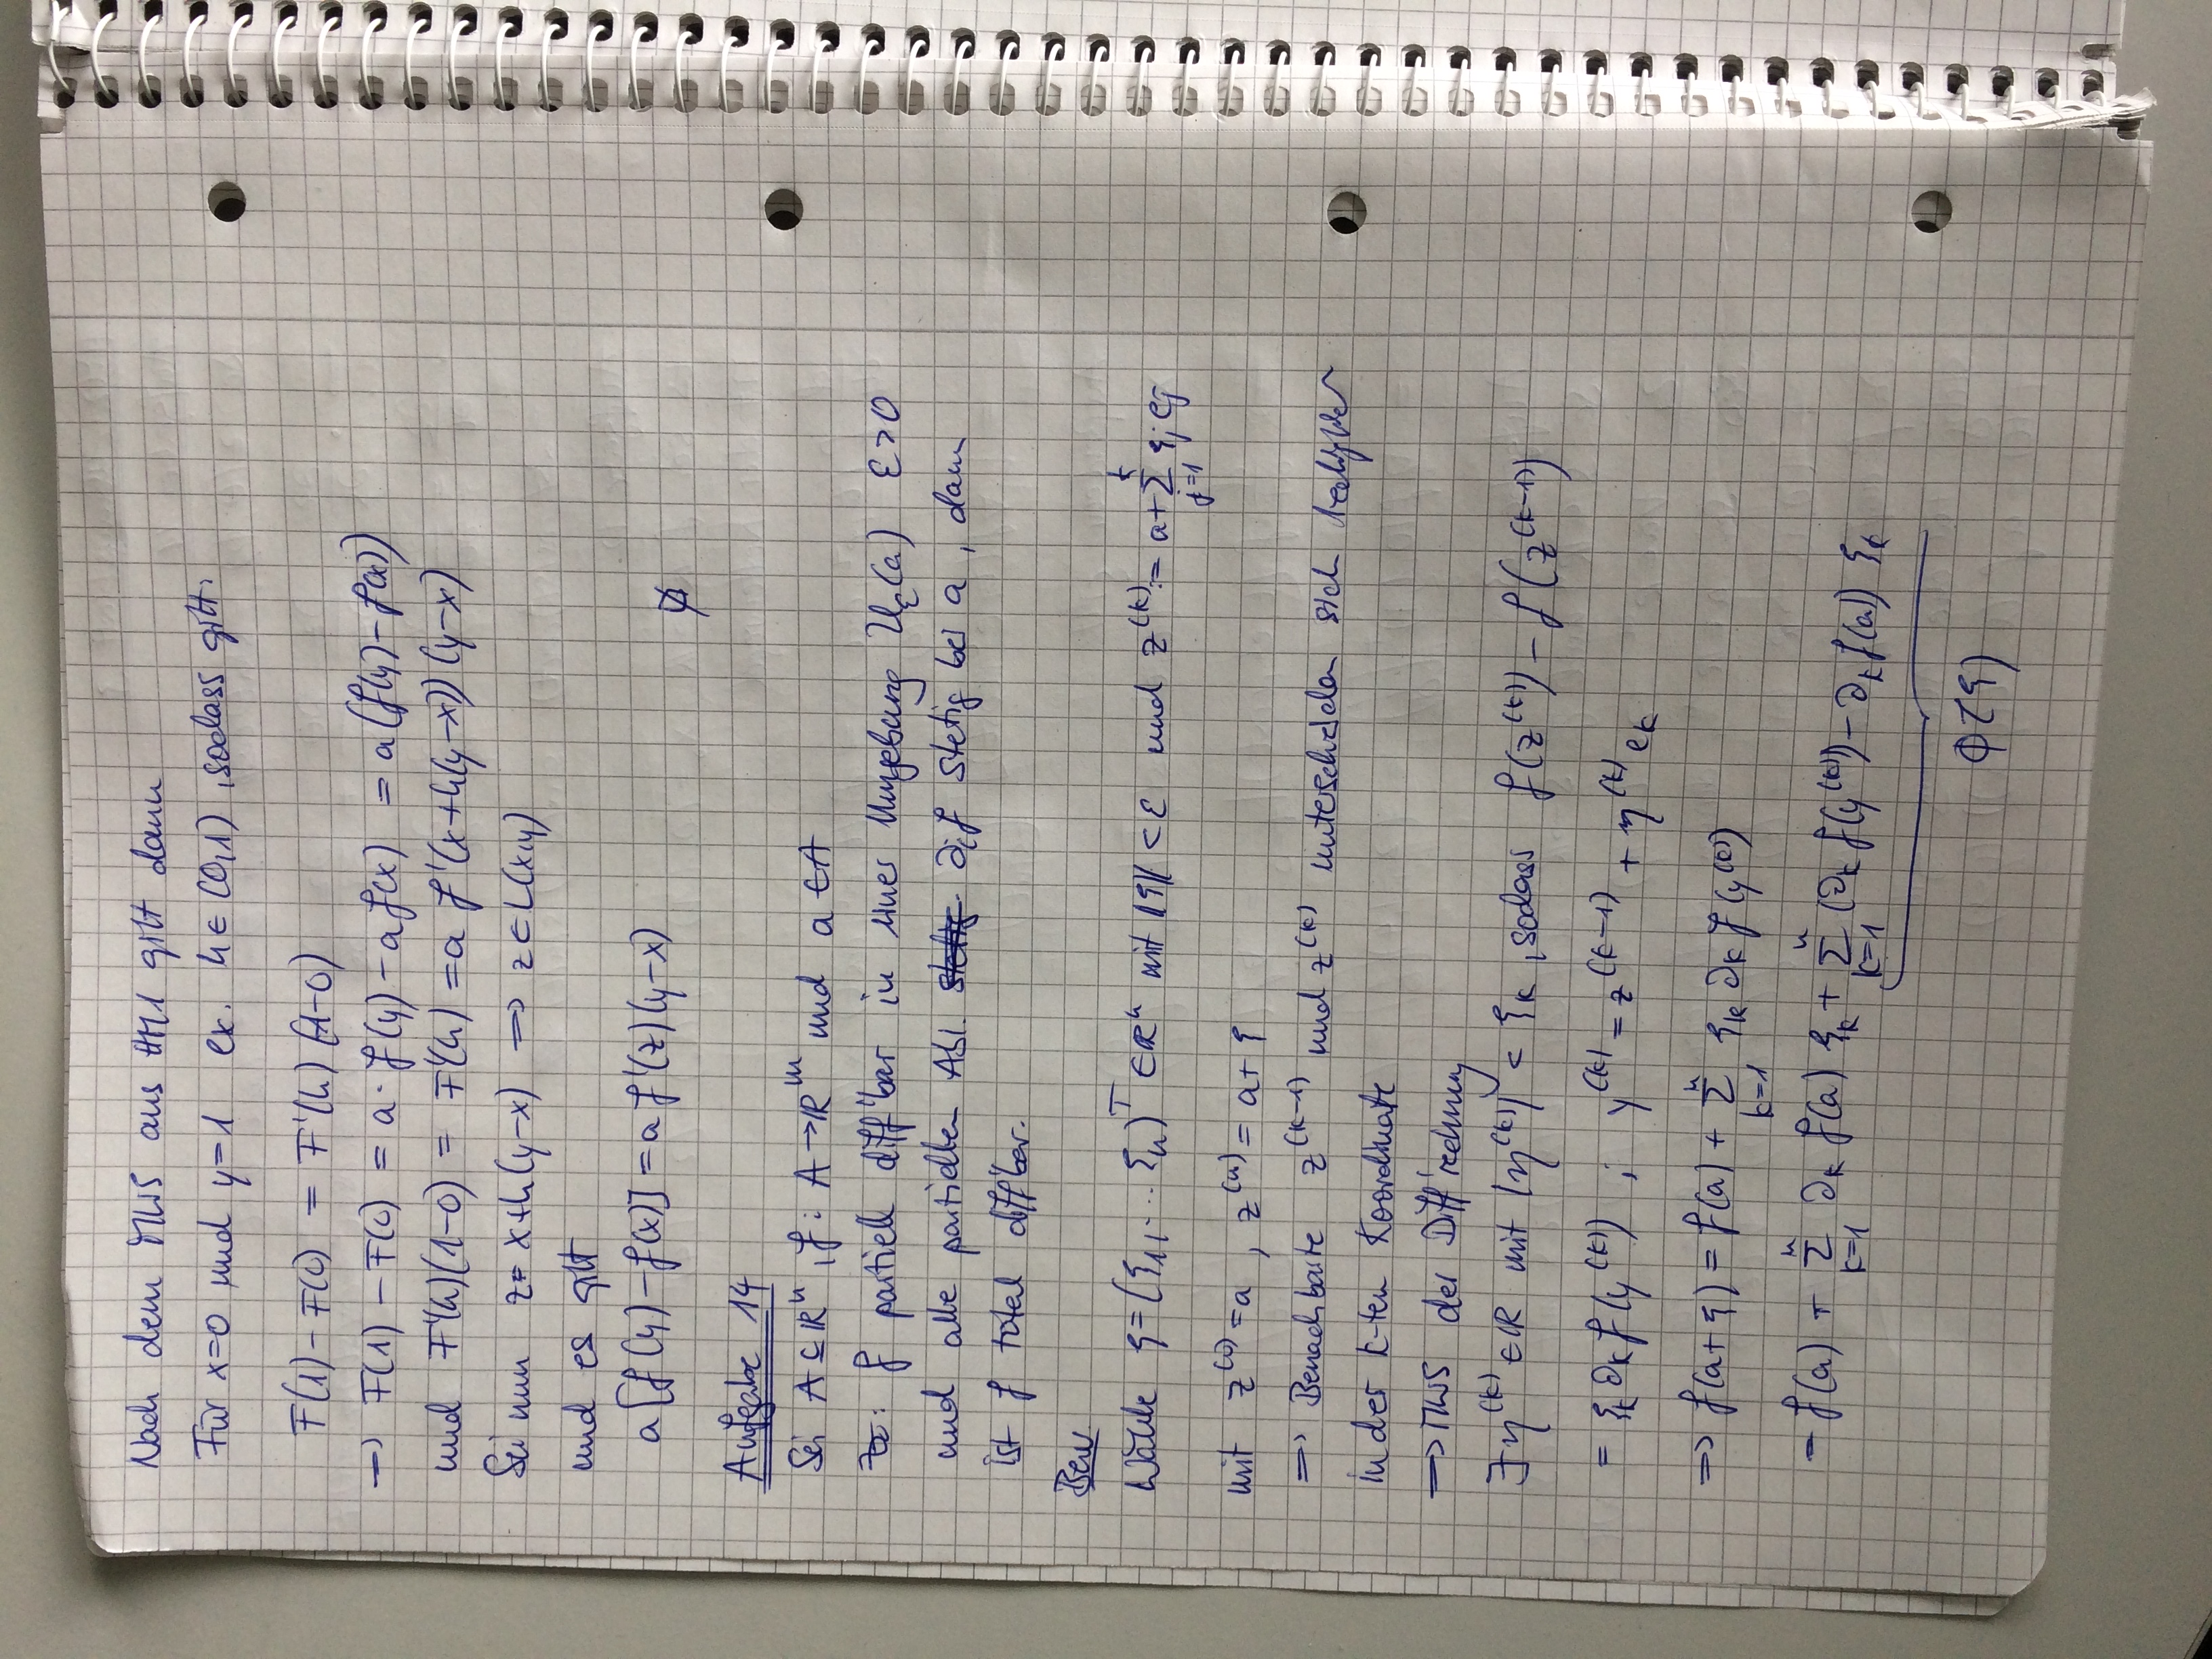 Nach dem MWS aus HM1 gilt dann
Für x=0 und y=1 ex. h ∈ (0,1), sodass gilt:
F(1) - F(0) = F'(h) (1-0)
=> F(1) - F(0) = a · f(y) - a f(x) = a (f(y) - f(x))
und F'(h)(1-0) = F'(h) = a f'(x+h(y-x)) (y-x)
Sei nun z = x+h(y-x) => z ∈ L(x,y)
und es gilt
a [f(y) - f(x)] = a f'(z) (y-x)
Aufgabe 14
Sei A ⊆ ℝⁿ, f: A → ℝᵐ und a ∈ A
Zz: f partiell diff'bar in einer Umgebung U_ε(a) ε>0
und alle partiellen Abl. stetig ∂ᵢf stetig bei a, dann
ist f total diff'bar.
Bew
Wähle ξ = (ξ₁, ... ξₙ)ᵀ ∈ ℝⁿ mit ‖ξ‖ < ε und z^(k) := a + Σ_{j=1}^{k} ξⱼ eⱼ
mit z^(0) = a, z^(n) = a + ξ
=> Benachbarte z^(k-1) und z^(k) unterscheiden sich lediglich
in der k-ten Koordinate
=> MWS der Diff'rechnung
∃ η^(k) ∈ ℝ mit |η^(k)| < ξₖ, sodass f(z^(k)) - f(z^(k-1))
= ξₖ ∂ₖ f(y^(k)) ; y^(k) = z^(k-1) + η^(k) eₖ
=> f(a+ξ) = f(a) + Σ_{k=1}^{n} ξₖ ∂ₖ f(y^(k))
= f(a) + Σ_{k=1}^{n} ∂ₖ f(a) ξₖ + Σ_{k=1}^{n} (∂ₖ f(y^(k)) - ∂ₖ f(a)) ξₖ
ϕ(ξ)